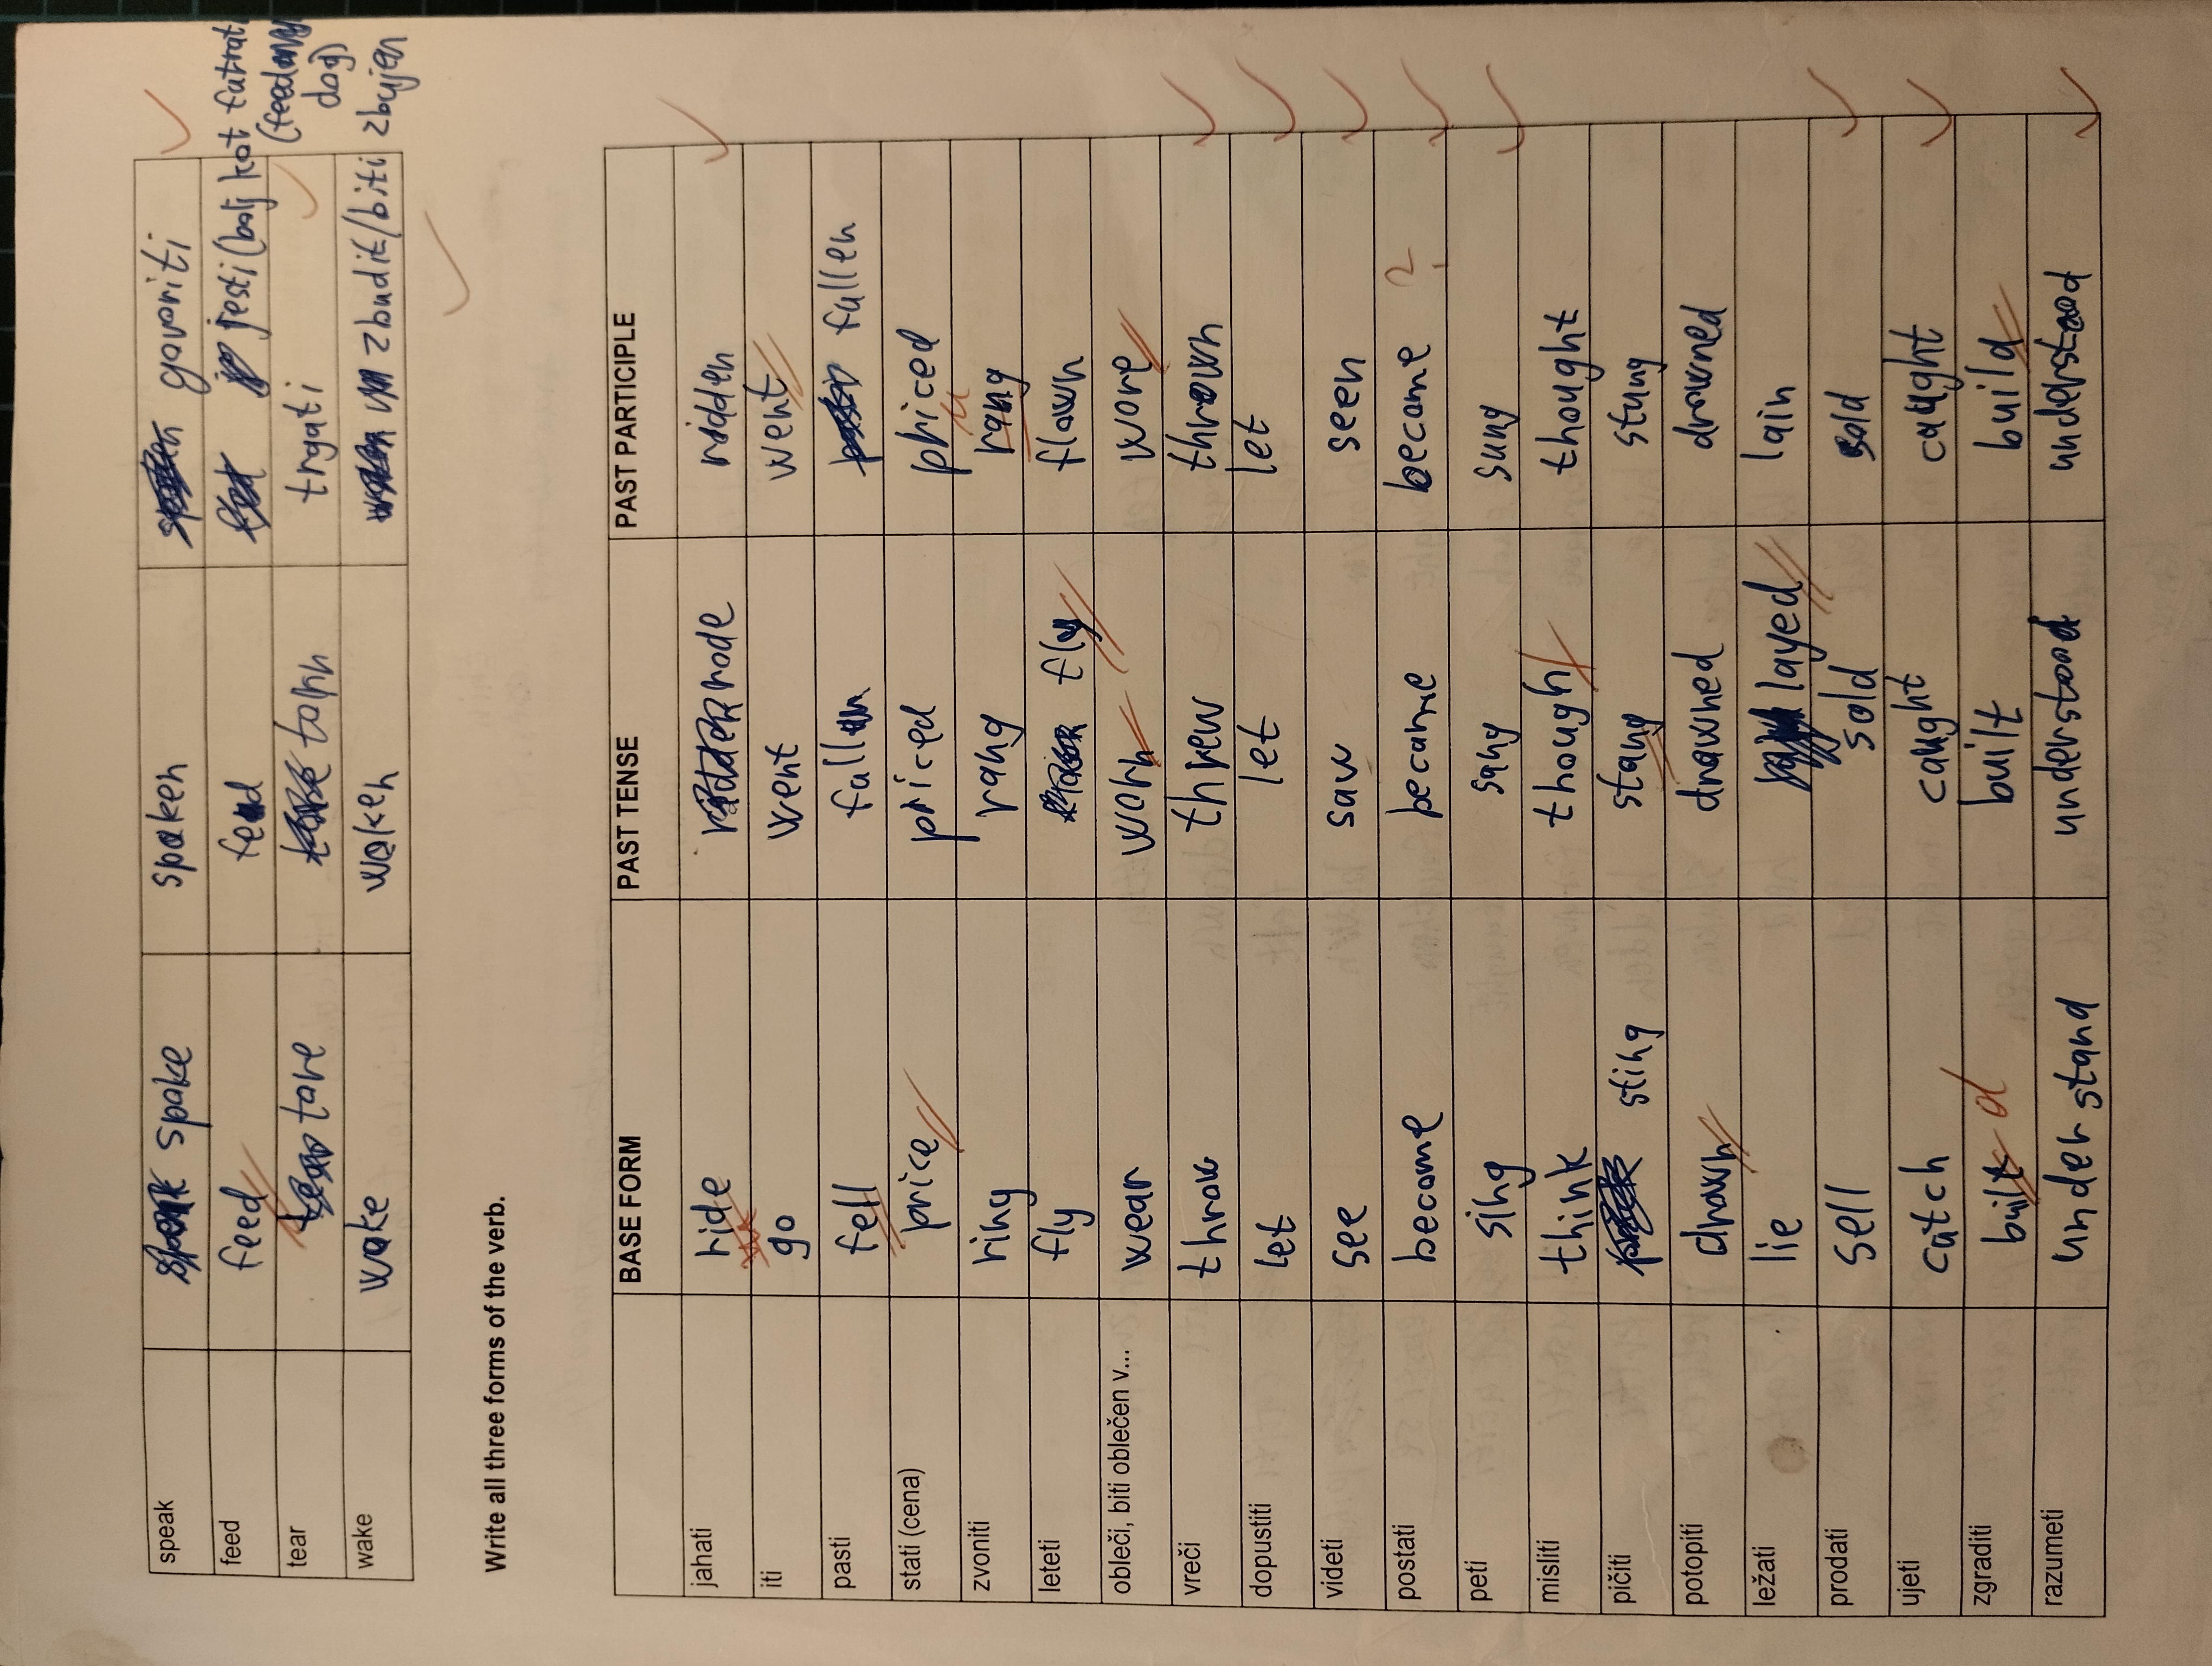 speak spoke spoken govoriti
feed feed feed jesti (bolj kot futrati
(feed my
dog)
tear tore torn trgati
wake woke woken zbudit/biti zbujen
Write all three forms of the verb.
BASE FORM PAST TENSE PAST PARTICIPLE
jahati ride rode ridden
iti go went went
pasti fell fallen fallen
stati (cena) price priced priced
u
zvoniti ring rang rang
leteti fly fly flown
obleči, biti oblečen v... wear worn wore
vreči throw threw thrown
dopustiti let let let
videti see saw seen
postati become became become ?
peti sing sang sung
misliti think though thought
pičiti sting stang stung
potopiti drown drowned drowned
ležati lie layed lain
prodati sell sold sold
ujeti catch caught caught
zgraditi built d built build
razumeti understand understood understood